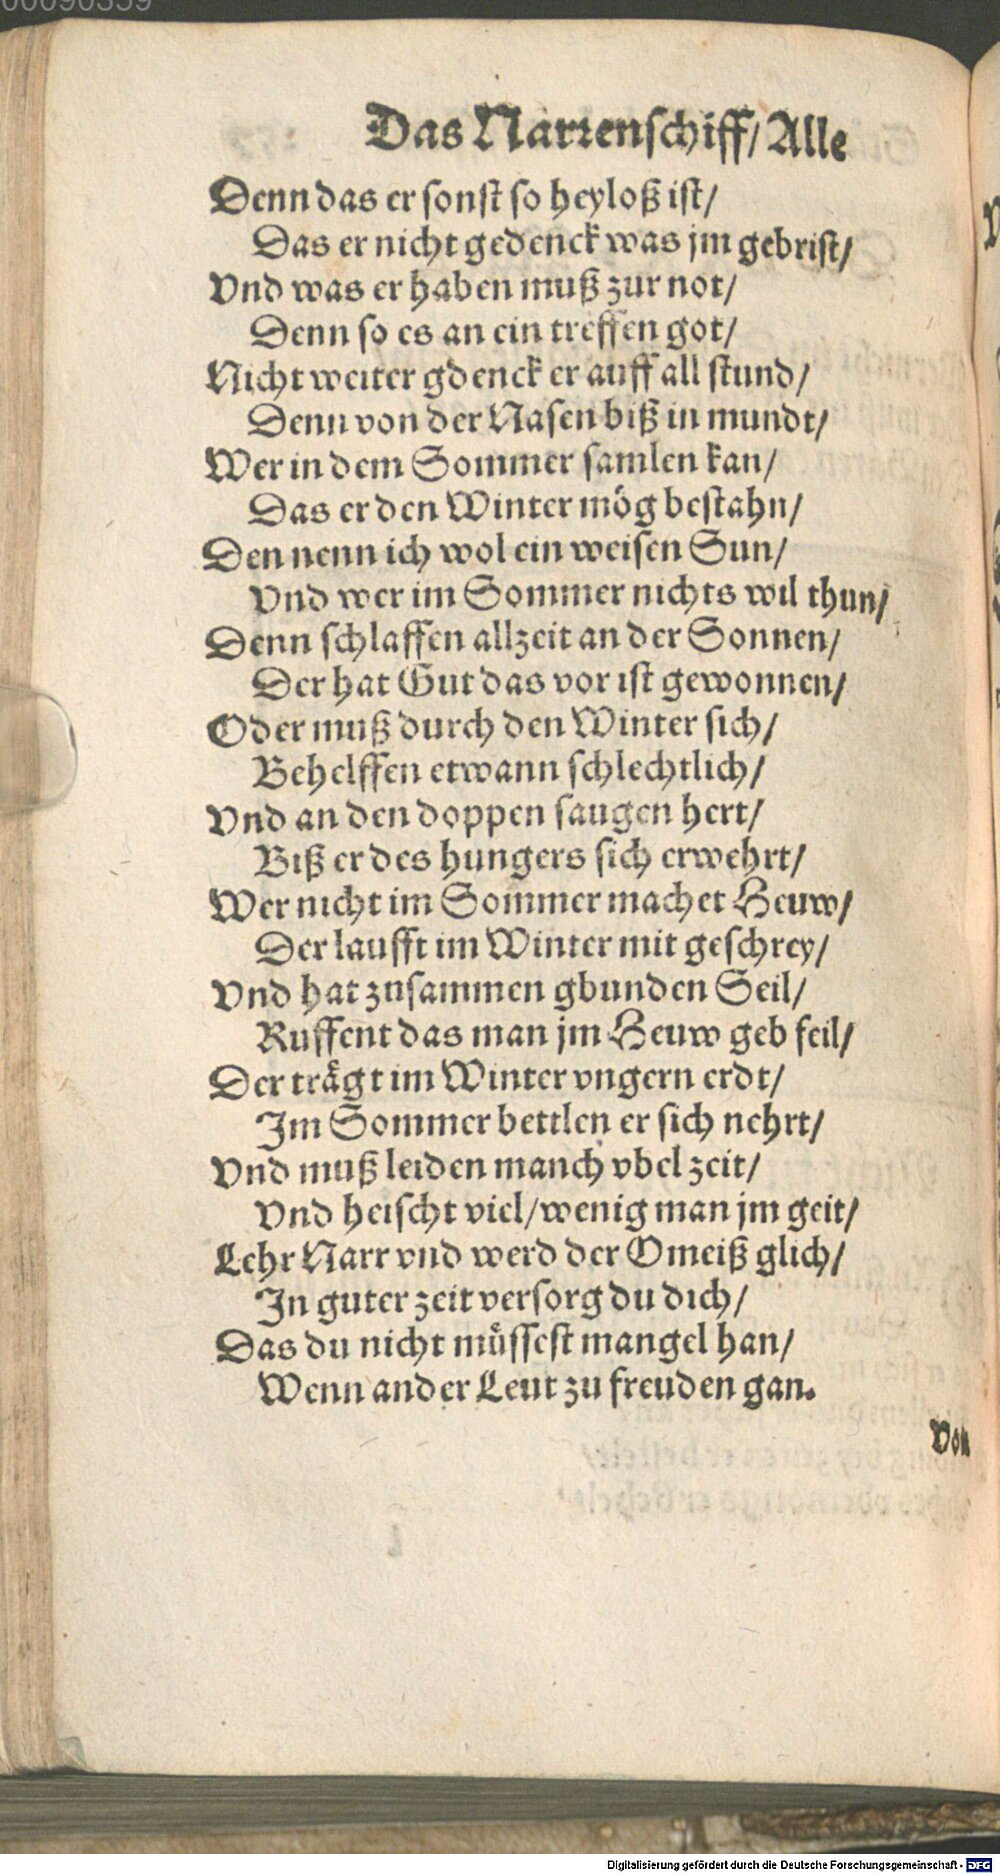 00090359
Das Narrenschiff/ Alle
Denn das er sonst so heyloß ist/
Das er nicht gedenck was jm gebrist/
Vnd was er haben muß zur not/
Denn so es an ein treffen got/
Nicht weiter gdenck er auff all stund/
Denn von der Nasen biß in mundt/
Wer in dem Sommer samlen kan/
Das er den Winter mög bestahn/
Den nenn ich wol ein weisen Sun/
Vnd wer im Sommer nichts wil thun/
Denn schlaffen allzeit an der Sonnen/
Der hat Gut das vor ist gewonnen/
Oder muß durch den Winter sich/
Behelffen etwann schlechtlich/
Vnd an den doppen saugen hert/
Biß er des hungers sich erwehrt/
Wer nicht im Sommer machet Heuw/
Der laufft im Winter mit geschrey/
Vnd hat zusammen gbunden Seil/
Ruffent das man jm Heuw geb feil/
Der trägt im Winter vngern erdt/
Im Sommer bettlen er sich nehrt/
Vnd muß leiden manch vbel zeit/
Vnd heischt viel/ wenig man jm geit/
Lehr Narr vnd werd der Omeiß glich/
In guter zeit versorg du dich/
Das du nicht müssest mangel han/
Wenn ander Leut zu freuden gan.
Von
Digitalisierung gefördert durch die Deutsche Forschungsgemeinschaft - DFG